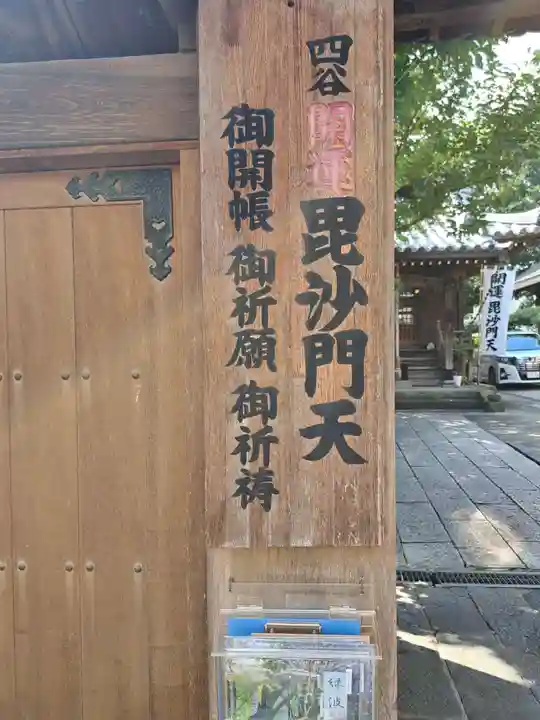 四谷開運毘沙門天
御開帳 御祈願 御祈祷
開運毘沙門天
緑波